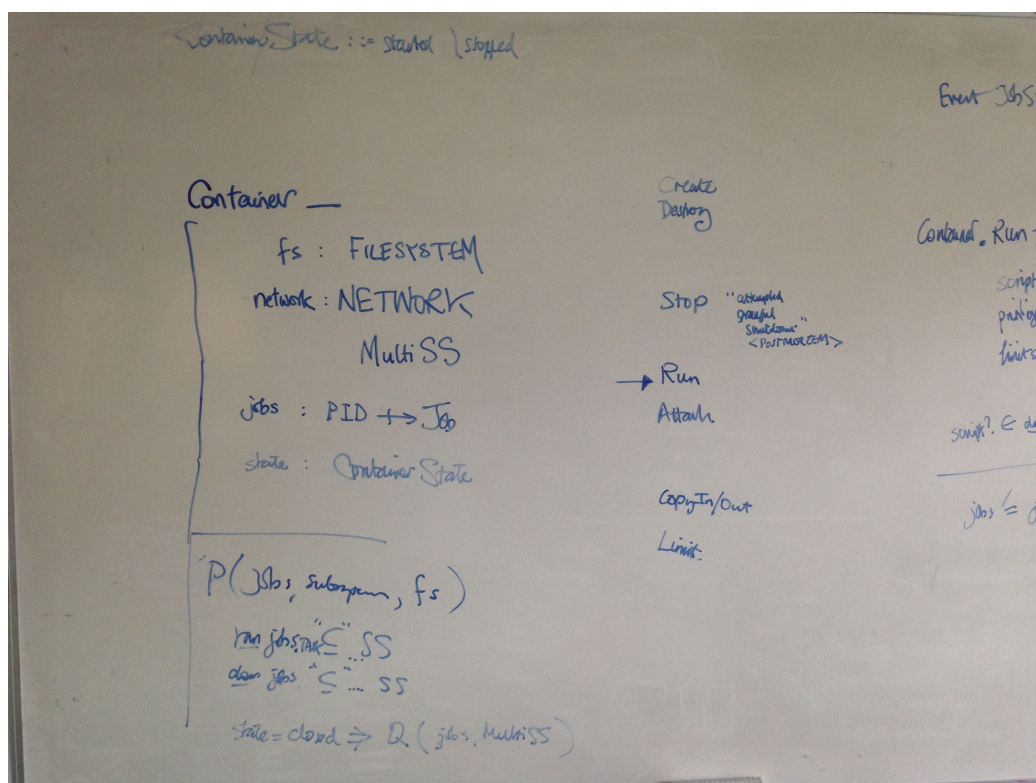 ContainerState ::= started | stopped
Event Job S
Container
fs : FILESYSTEM
network : NETWORK
MultiSS
jobs : PID ⇸ Job
state : ContainerState
P(jobs, , fs)
ran jobs "⊆" SS
dom jobs "⊆" ... SS
state = closed ⇒ Q (jobs, MultiSS)
Create
Destroy
Stop "attempted
graceful
shutdown"
<POSTMORTEM>
→ Run
Attach
CopyIn/Out
Limit
Container. Run
script
limits
script? ∈
jobs' =